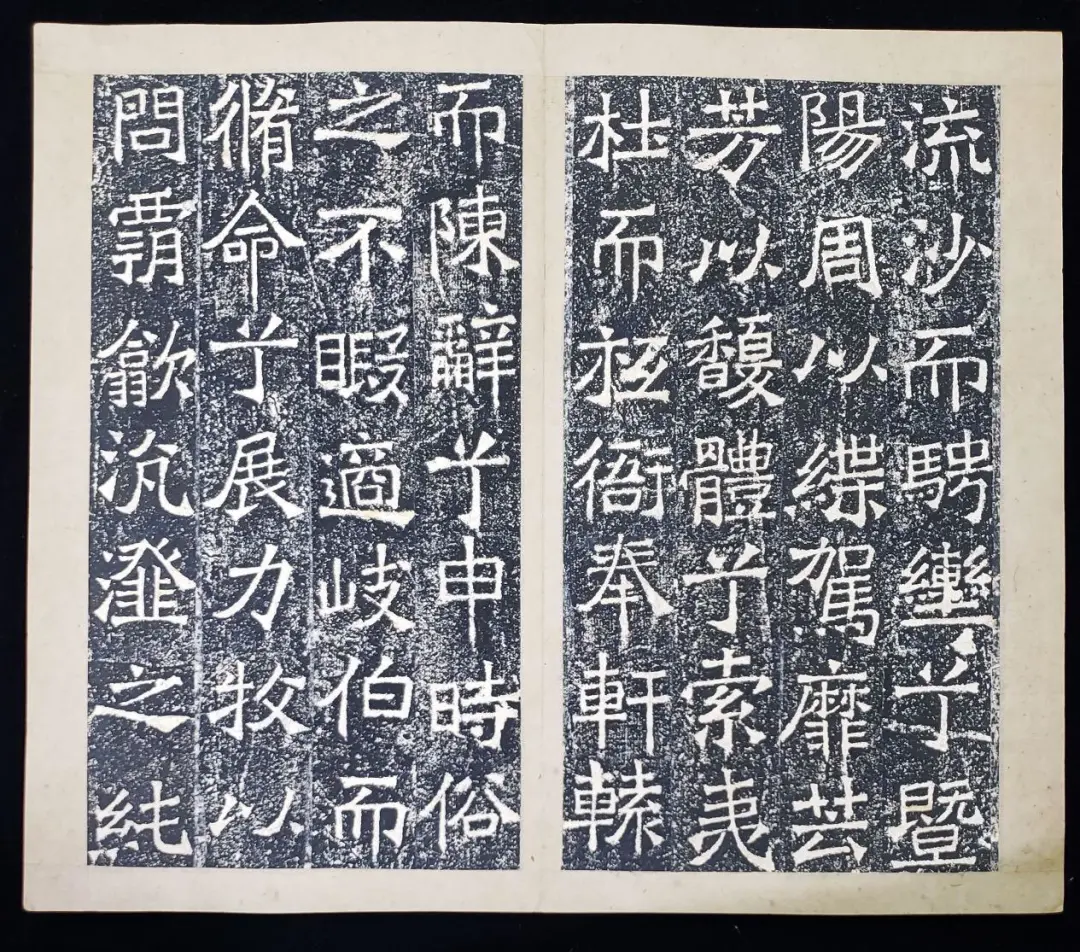 流沙而騁轡兮暨
陽周以緤駕靡芸
芳以馥體兮索夷
杜而祗衙奉軒轅
而陳辭兮申時俗
之不暇適岐伯而
脩命兮展力牧以
問霸歙沆瀣之純